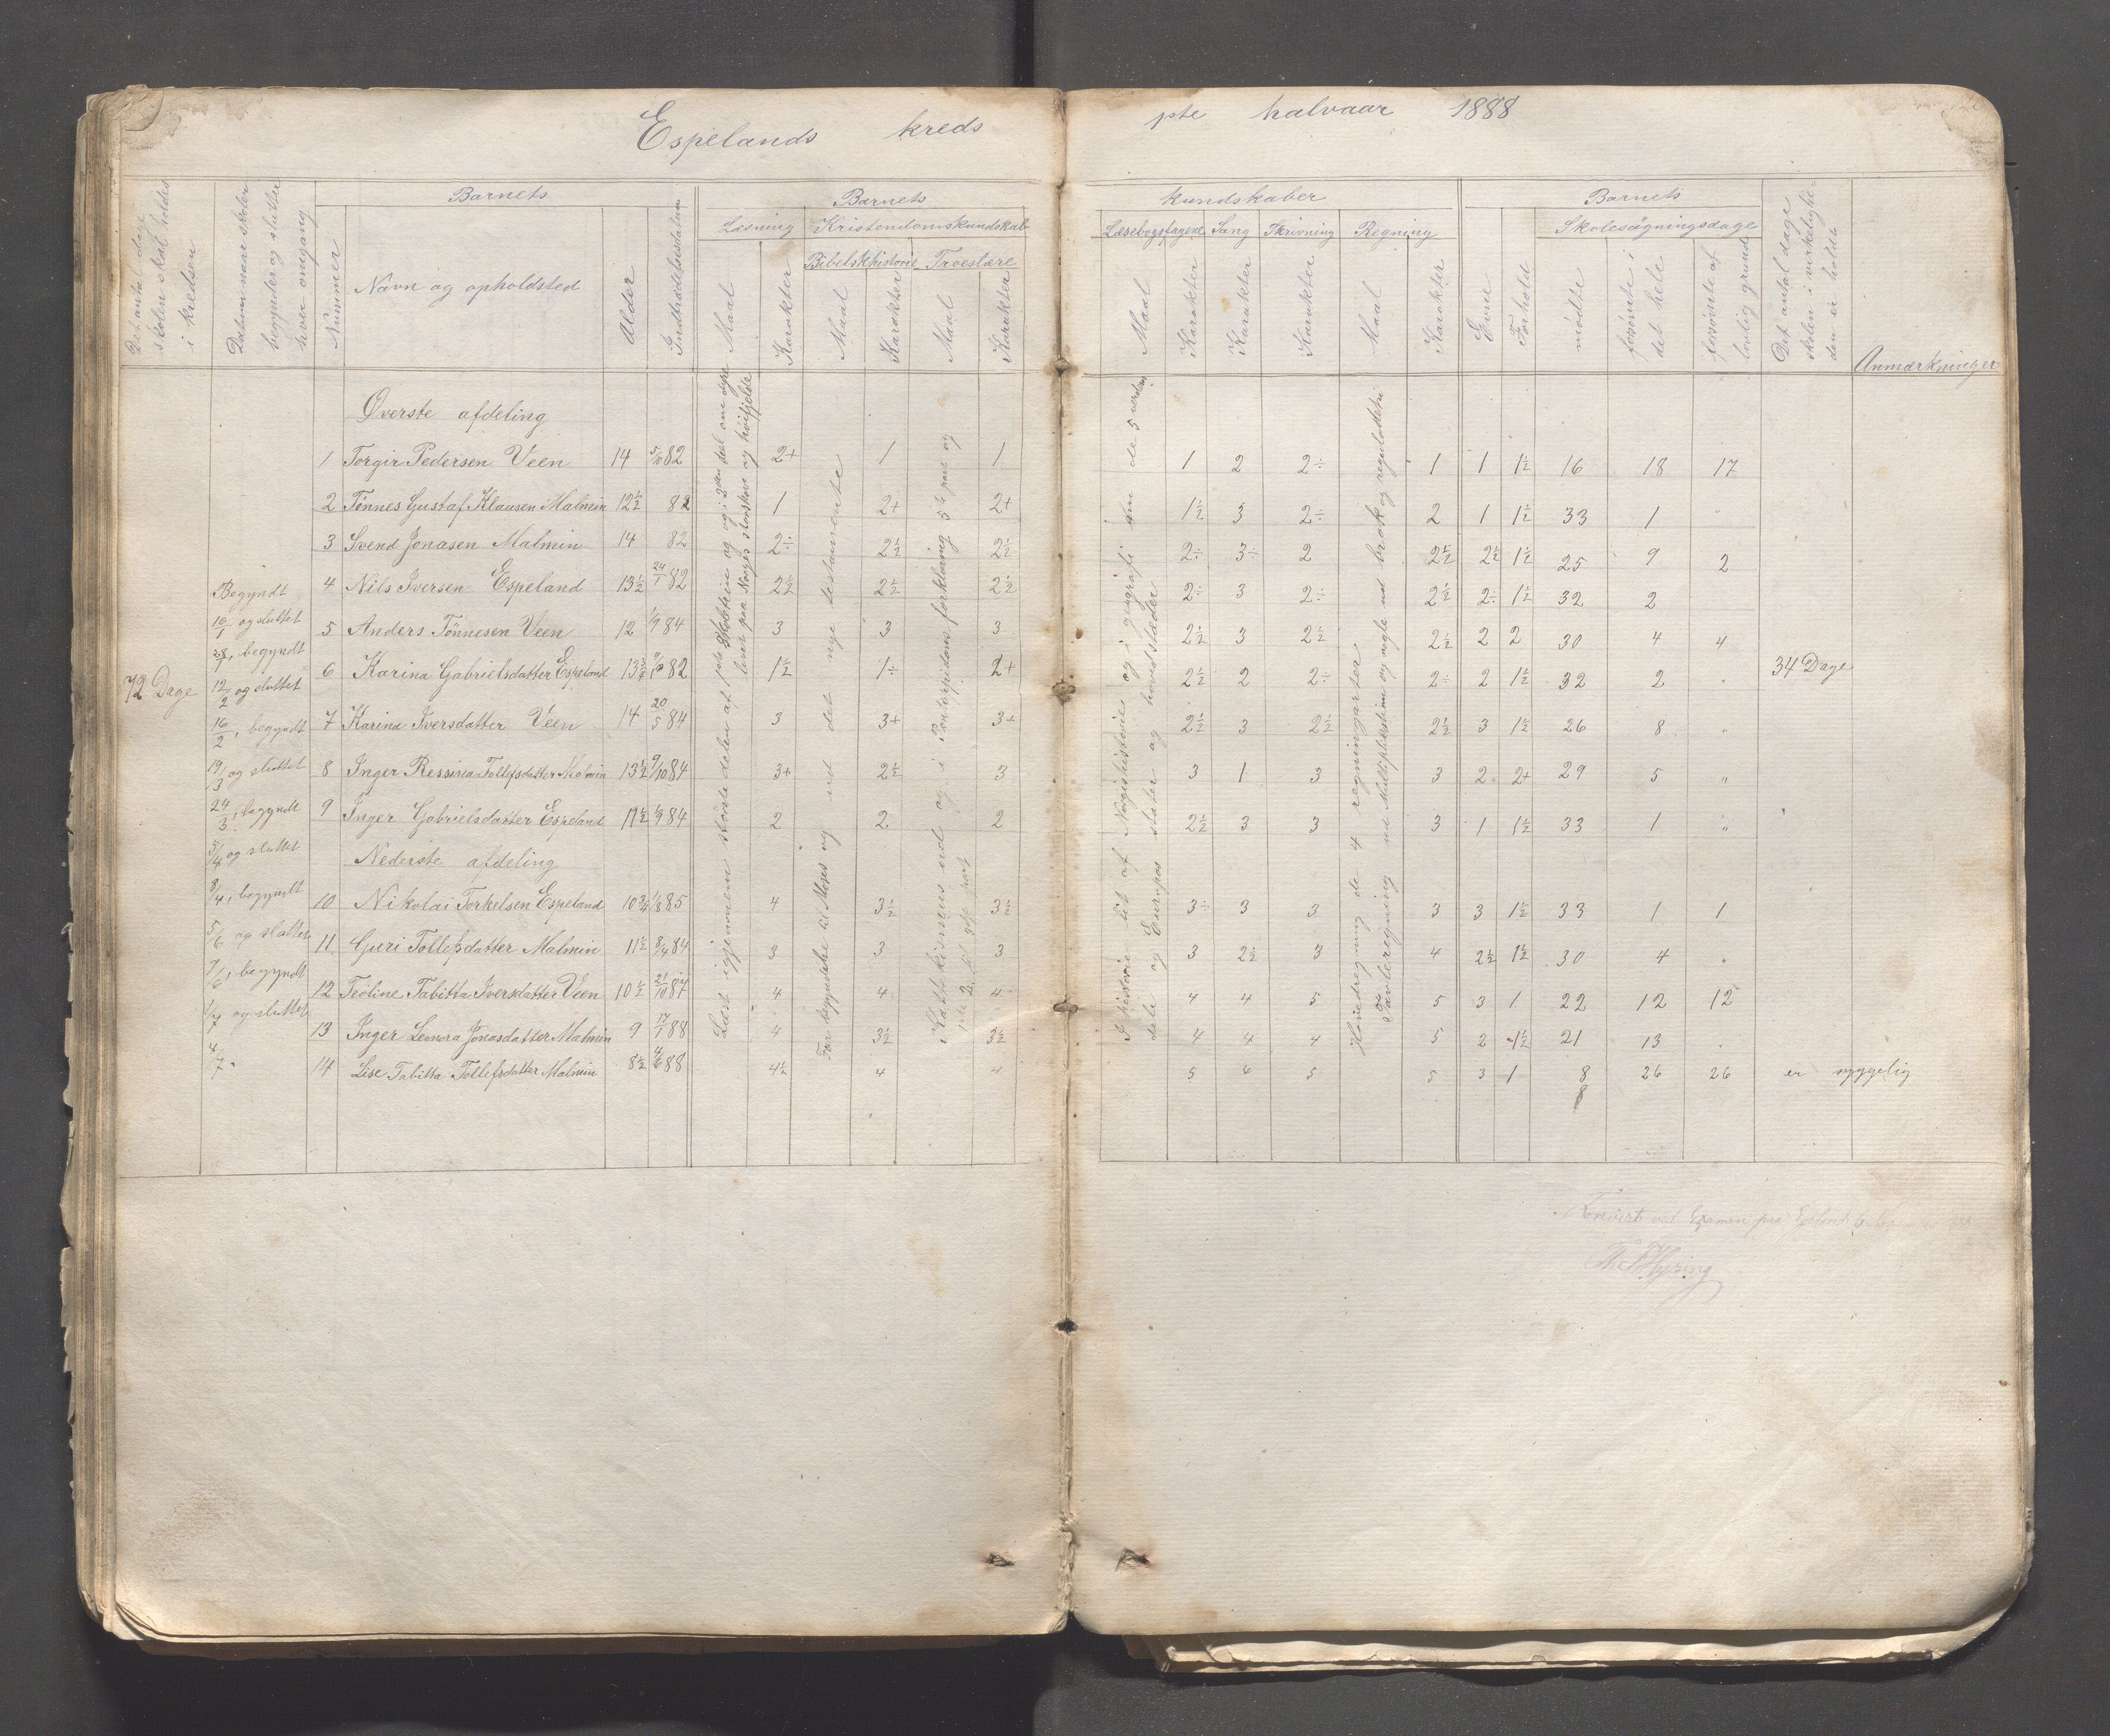 Espelands kreds 1ste halvaar 1888
Det antal dage skolen skal holdes i kredsen
Datum naar skolen begynder og slutter hver omgang
Nummer
Barnets
Navn og opholdsted
Alder
Indtrædelsesdatum
Barnets kundskaber
Læsning
Maal
Karakter
Kristendomskundskab
Bibelskhistorie
Maal
Karakter
Troeslære
Maal
Karakter
Læsebogsfagene
Maal
Karakter
Sang
Karakter
Skrivning
Karakter
Regning
Maal
Karakter
Barnets
Evne
Forhold
Skolesøgningsdage
mødte
forsømte i det hele
forsømte af lovlig grund
Det antal dage skolen i virkelighe-den er holdt
Anmærkninger
72 Dage
Begyndt
10/1 og sluttet
28/1, begyndt
12/2 og sluttet
16/2, begyndt
19/3 og sluttet
24/3, begyndt
5/4 og sluttet
8/4, begyndt
5/6 og sluttet
7/6, begyndt
1/7 og sluttet
4/7.
Øverste afdeling
1 Torgir Pedersen Veen 14 5/10 82 2+ 1 1 1 2 2÷ 1 1 1½ 16 18 17
2 Tønnes Gustaf Klausen Malmin 12½ 82 1 2+ 2+ 1½ 3 2÷ 2 1 1½ 33 1 "
3 Svend Jonasen Malmin 14 82 2÷ 2½ 2½ 2÷ 3÷ 2 2½ 2½ 1½ 25 9 2
4 Nils Iversen Espeland 13½ 24/1 82 2½ 2½ 2½ 2÷ 3 2÷ 2½ 2÷ 1½ 32 2
5 Anders Tönnesen Veen 12 1/9 84 3 3 3 2½ 3 2½ 2½ 2 2 30 4 4
6 Karina Gabrielsdatter Espeland 82 1½ 1÷ 2+ 2½ 2 2÷ 2÷ 2 1½ 32 2 "
7 Karina Iversdatter Veen 14 20/5 84 3 3+ 3+ 2½ 3 2½ 2½ 3 1½ 26 8 "
8 Inger Ressina Tollefsdatter Malmin 13½ 9/10 84 3+ 2½ 3 3 1 3 3 2 2+ 29 5 "
9 Inger Gabrielsdatter Espeland 11½ 1/9 84 2 2 2 2½ 3 3 3 1 1½ 33 1 "
34 Dage
Nederste afdeling
10 Nikolai Torkelsen Espeland 85 4 3½ 3½ 3÷ 3 3 3 3 1½ 33 1 1
11 Guri Tollefsdatter Malmin 11½ 8/4 84 3 3 3 3 2½ 3 4 2½ 1½ 30 4 "
12 Teoline Tabitta Iversdatter Veen 10½ 21/10 87 4 4 4 4 4 5 5 3 1 22 12 12
13 Inger Leonora Jonasdatter Malmin 9 17/1 88 4 3½ 3½ 4 4 4 5 2 1½ 21 13 "
14 Lise Tabitta Tollefsdatter Malmin 8½ 4/6 88 4½ 4 4 5 4 5 5 3 1 8 26 26 er sygelig
8
Læst igjennem største delen af 1ste skoletrin og i 2den del om dyre
livet paa Norges storskove og høifjelde
Fra begyndelse til Moses og ud det nye testamente
Katekismus ud og i Pontoppidans forklaring 5te part og
I historie lidt af Norgishistorie og i geografi om de 5 verdens
dele og Europas stater og hovedstæder
Hovedregning de 4 regningarter
Tavleregning ud Multiplikation og nogle ud brøk og reguladetri
ved Examen paa